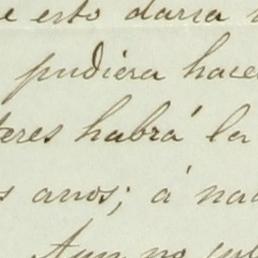 e esto daria
pudiera hace
teres habrá la
s anos; á na
Aun no